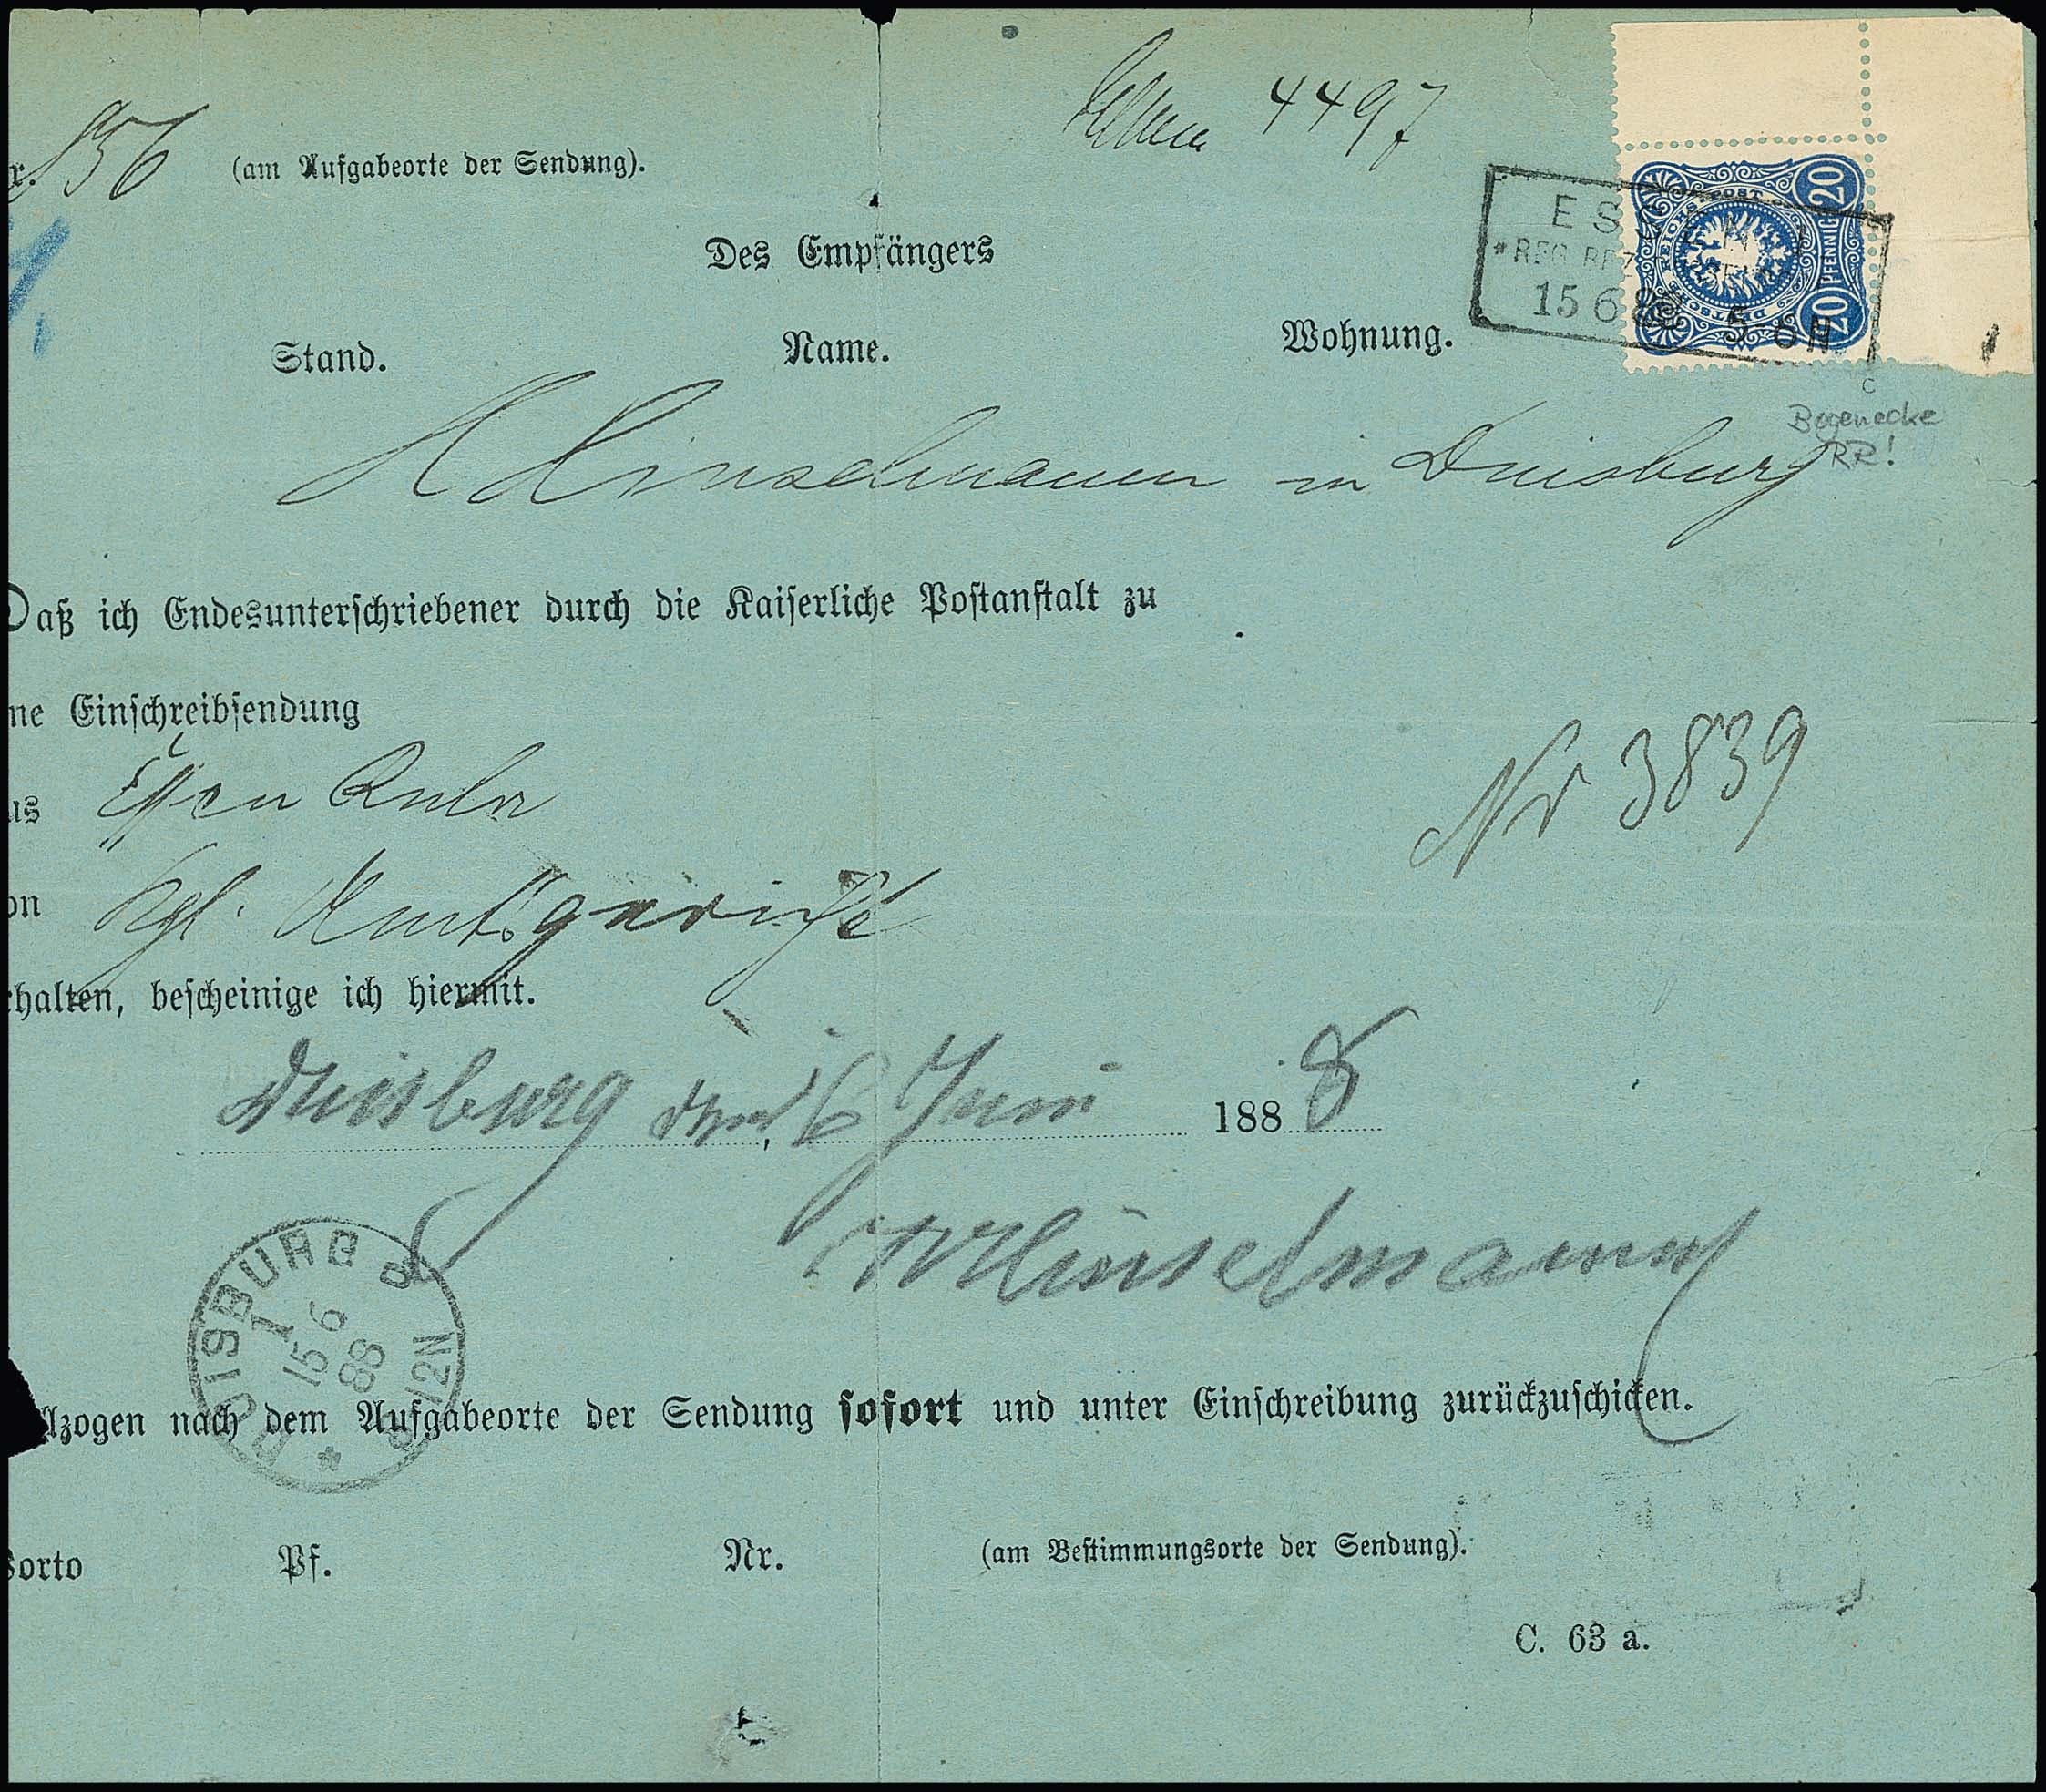 4497
r. 856 (am Aufgabeorte der Sendung).
Des Empfängers
Stand. Name. Wohnung.
REICHS-POST
20 PFENNIG 20
ESSEN 1
*REG. BEZ.
15 6 88 5-6N
Bogenecke
RR!
Klinselmann in Duisburg
Daß ich Endesunterschriebener durch die Kaiserliche Postanstalt zu
ne Einschreibsendung
us Essen Ruhr
Nr 3839
on Kgl. Amtsgericht
rhalten, bescheinige ich hiermit.
Duisburg den 16 Juni 1888
Klinselmann
DUISBURG
1
15 6
88
12N
llzogen nach dem Aufgabeorte der Sendung sofort und unter Einschreibung zurückzuschicken.
Porto Pf. Nr. (am Bestimmungsorte der Sendung).
C. 63 a.